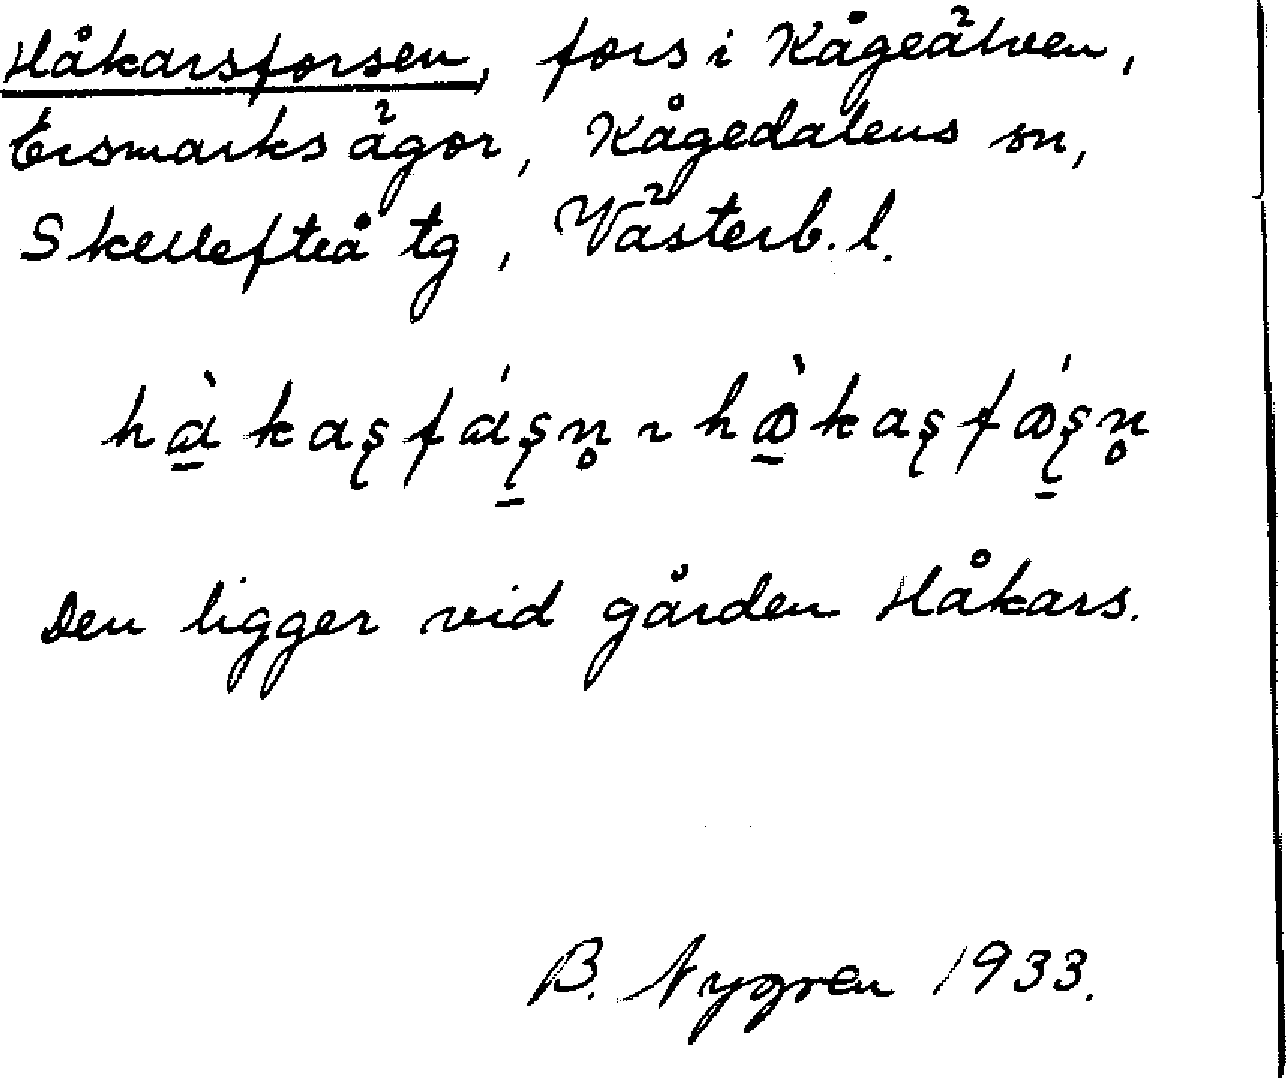 Håkarsforsen, fors i Kågeälven,
Ersmarks ägor, Kågedalens sn,
Skellefteå tg, Västerb. l.
hὰ̱kaʂfάʂ̱n̥ ~ hɷ̱̀kaʂfɷ́ʂ̱n̥
Den ligger vid gården Håkars.
B. Nygren 1933.